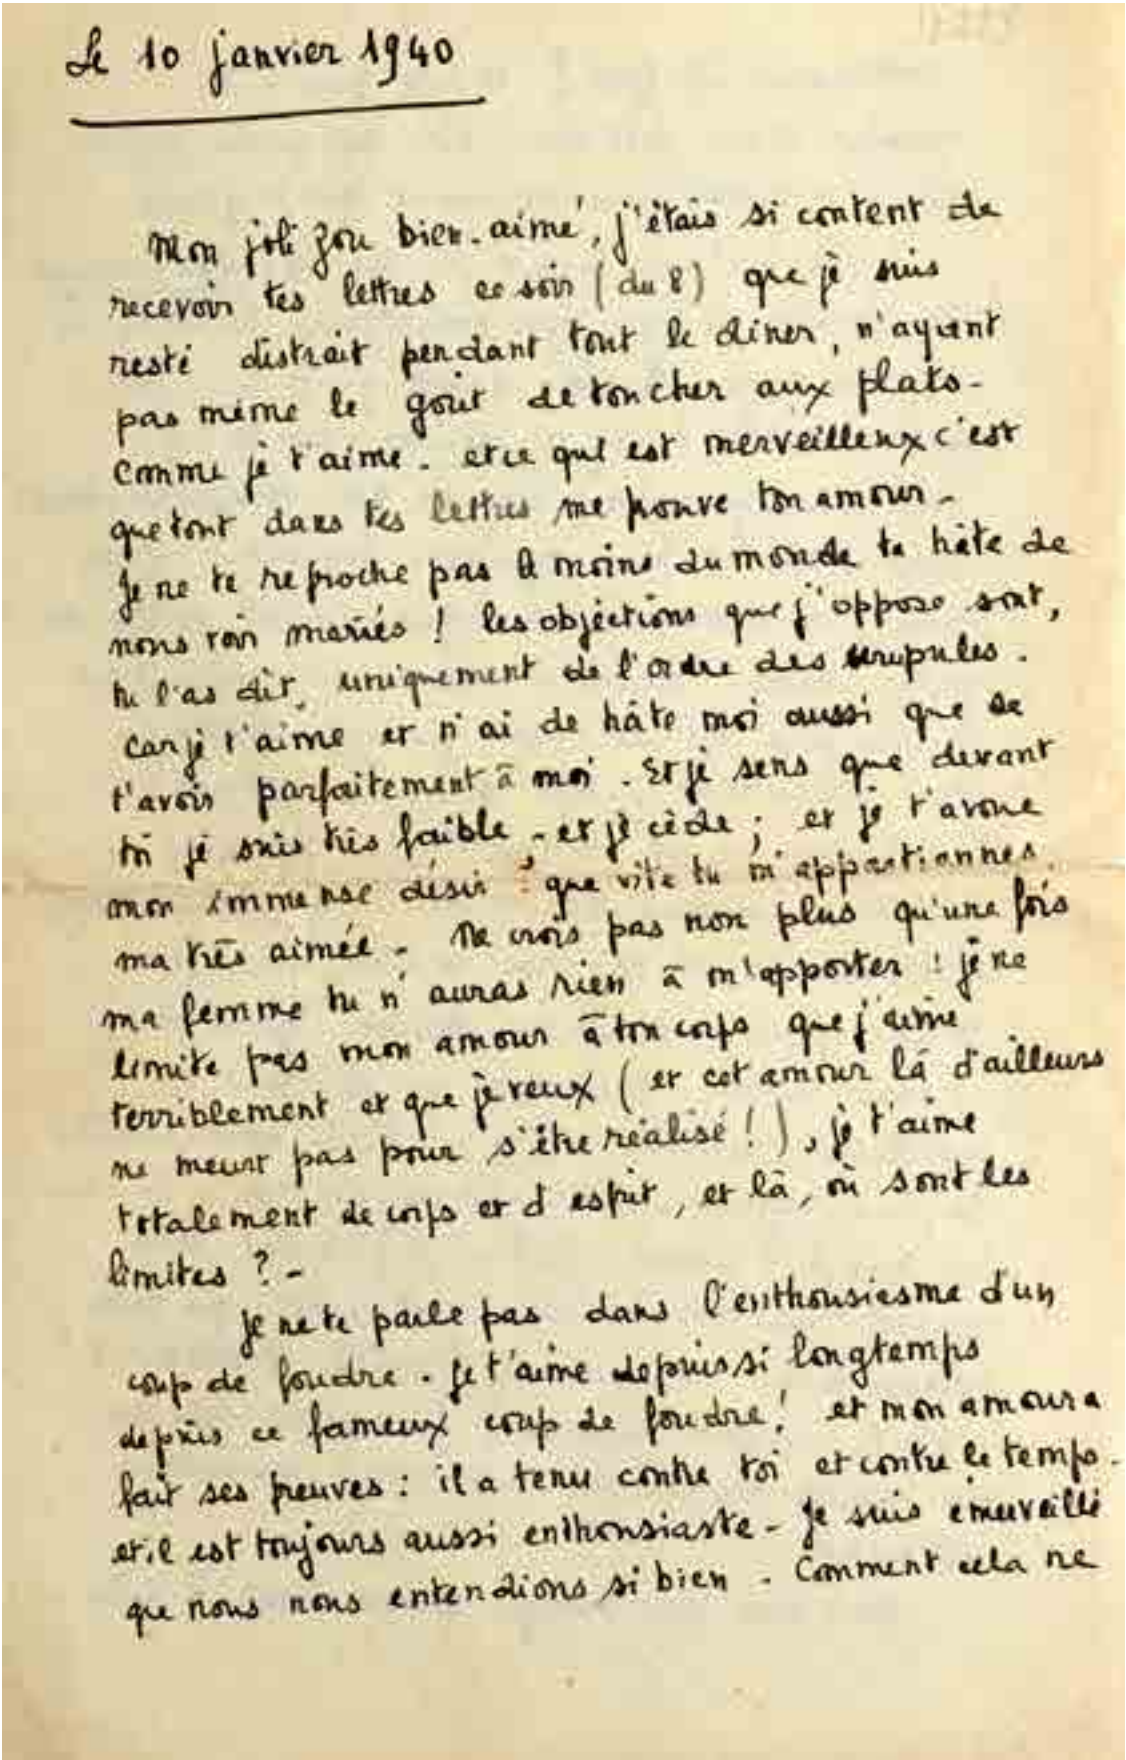 Le 10 janvier 1940
Mon joli zou bien-aimé, j'étais si content de
recevoir tes lettres ce soir (du 8) que je suis
resté distrait pendant tout le dîner, n'ayant
pas même le goût de toucher aux plats -
Comme je t'aime. et ce qui est merveilleux c'est
que tout dans tes lettres me prouve ton amour -
Je ne te reproche pas le moins du monde ta hâte de
nous voir mariés ! les objections que j'oppose sont,
tu l'as dit, uniquement de l'ordre des scrupules.
Car je t'aime et n'ai de hâte moi aussi que de
t'avoir parfaitement à moi. Et je sens que devant
toi je suis très faible - et je cède ; et je t'avoue
mon immense désir : que vite tu m'appartiennes.
ma très aimée - Ne crois pas non plus qu'une fois
ma femme tu n'auras rien à m'apporter : je ne
limite pas mon amour à ton corps que j'aime
terriblement et que je veux (et cet amour là d'ailleurs
ne meurt pas pour s'être réalisé !), je t'aime
totalement de corps et d'esprit, et là, où sont les
limites ? -
Je ne te parle pas dans l'enthousiasme d'un
coup de foudre. Je t'aime depuis si longtemps
depuis ce fameux coup de foudre ! et mon amour a
fait ses preuves : il a tenu contre toi et contre le temps -
et il est toujours aussi enthousiaste - Je suis émerveillé
que nous nous entendions si bien - Comment cela ne